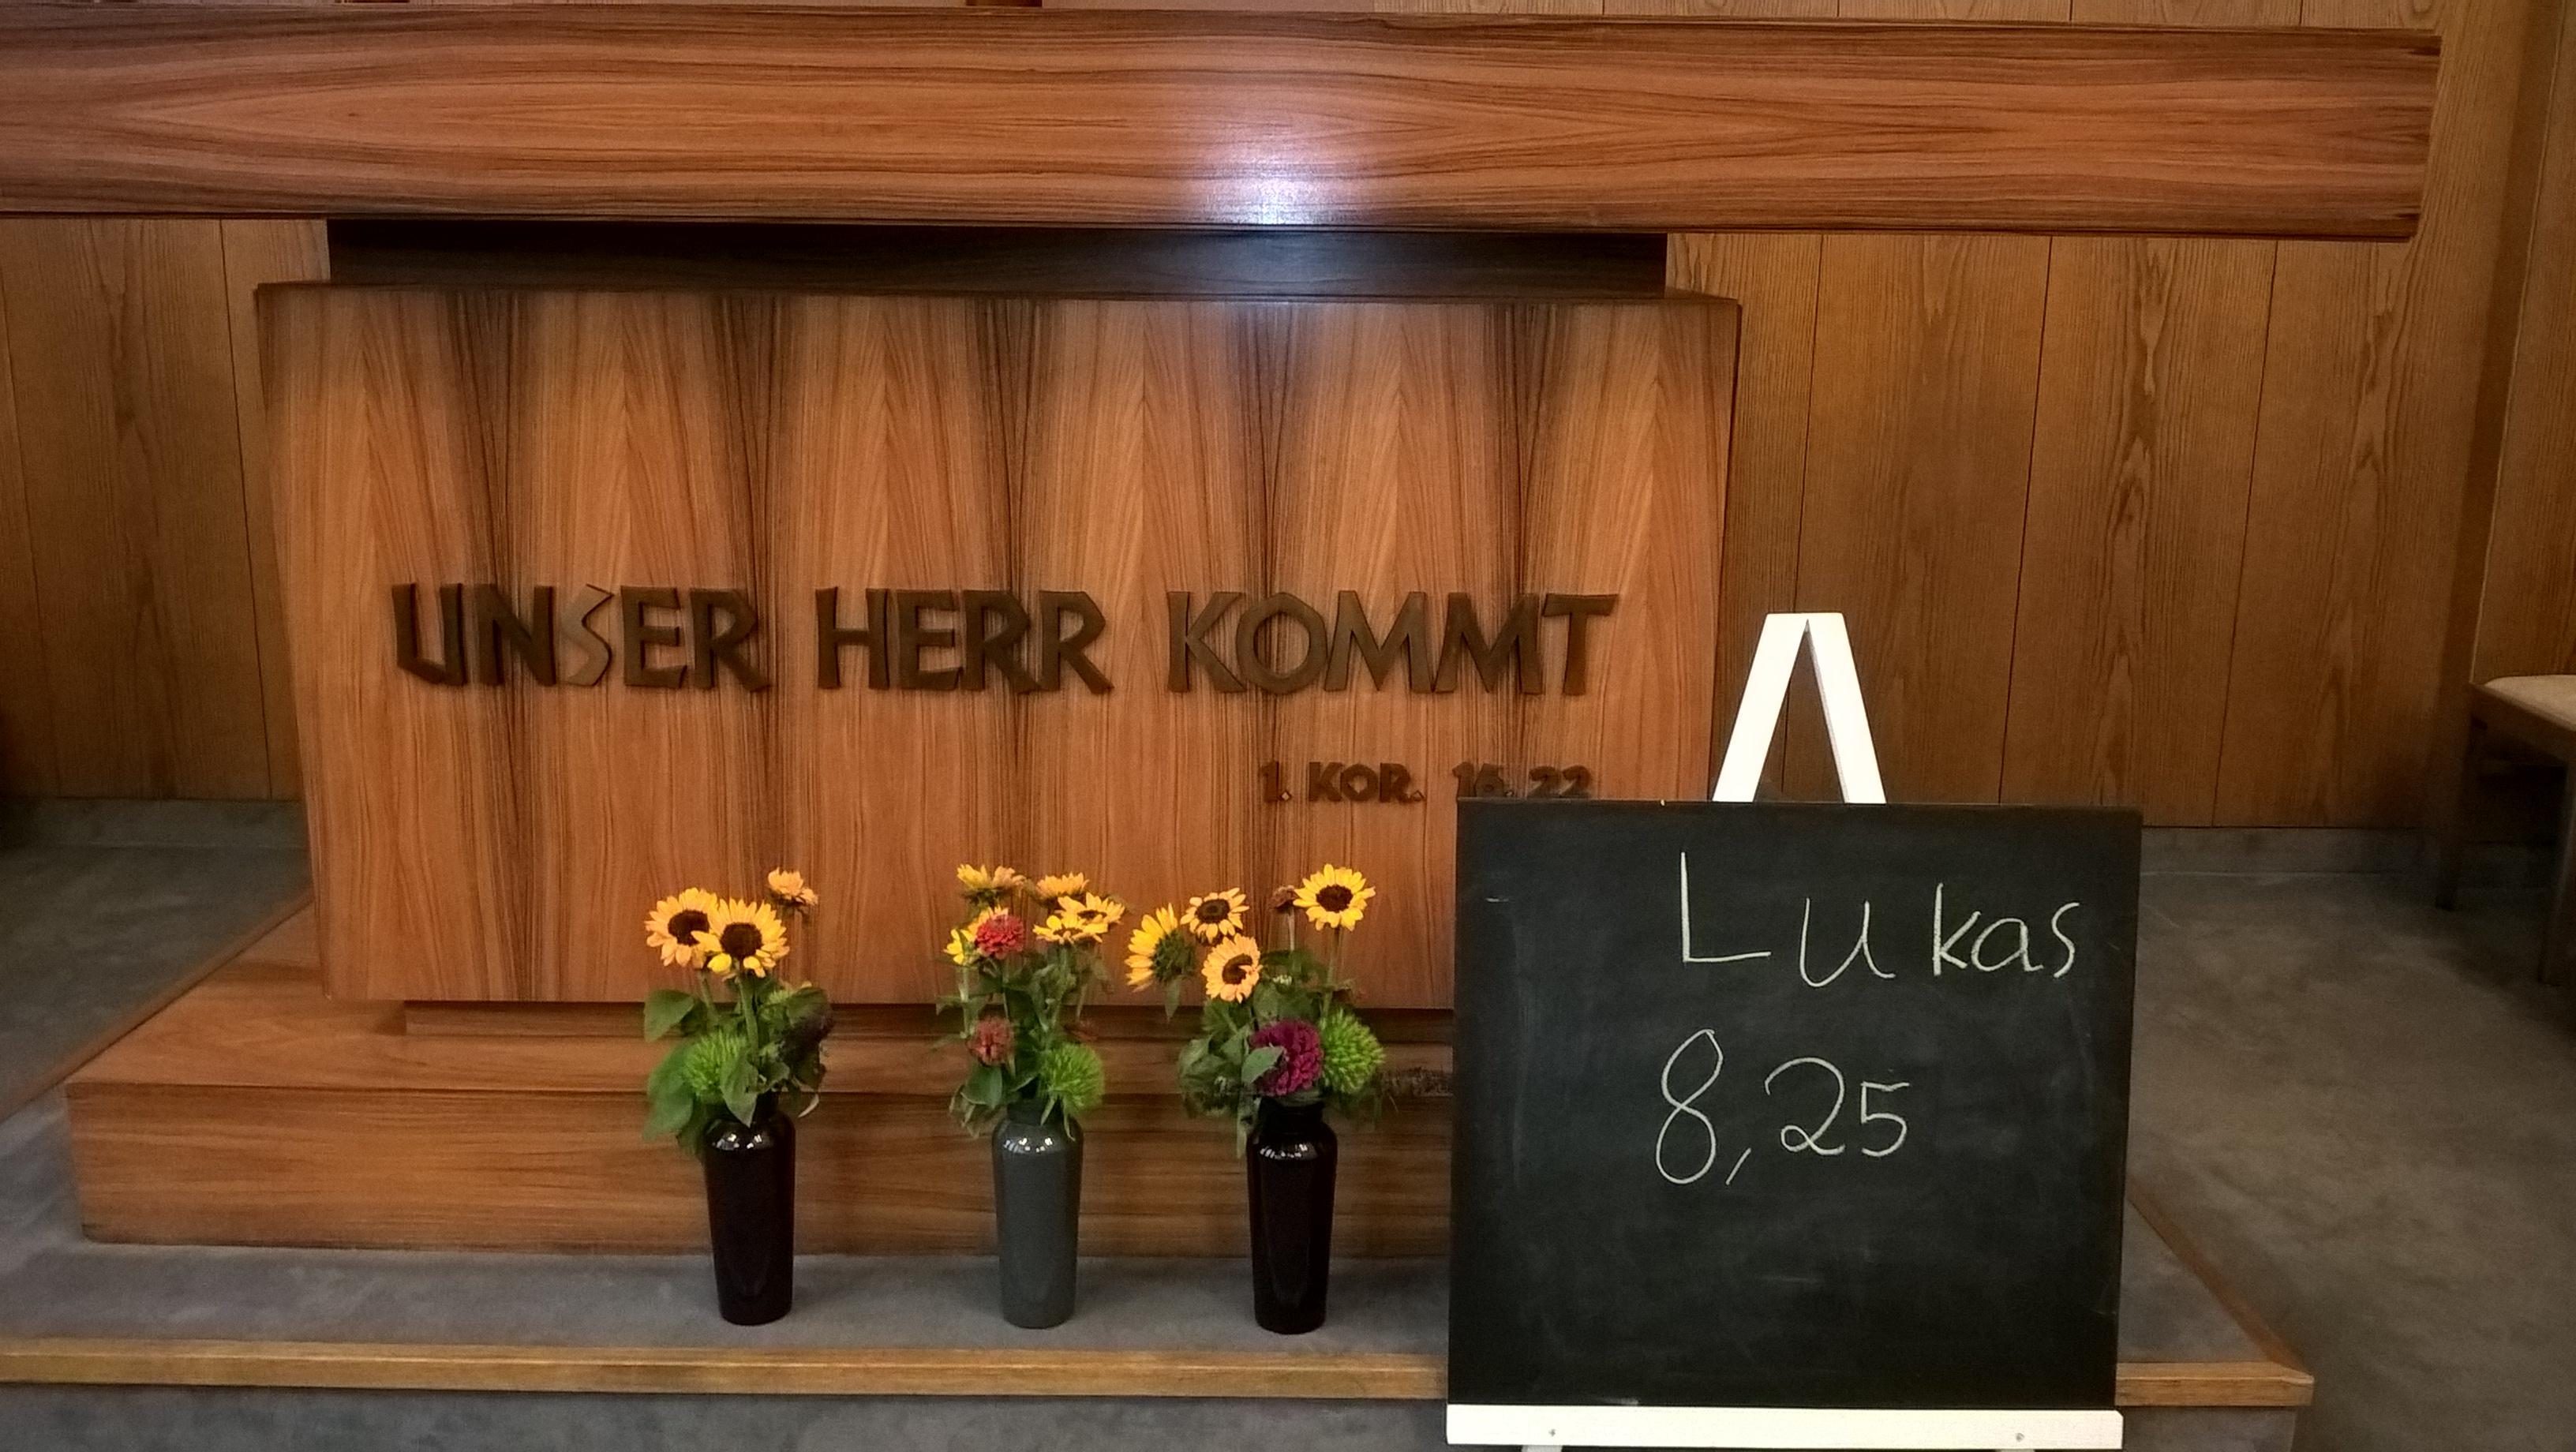 UNSER HERR KOMMT
1. KOR. 16. 22
Lukas
8,25